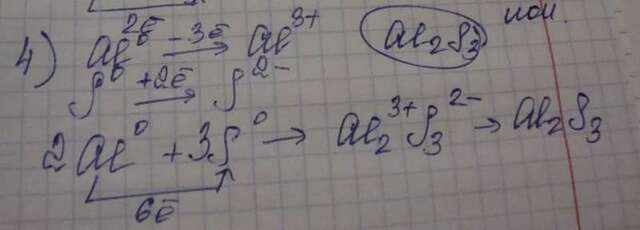 4) Al⁰ –3ē → Al³⁺ Al₂S₃ ион.
S⁰ +2ē → S²⁻
2Al⁰ + 3S⁰ → Al₂³⁺S₃²⁻ → Al₂S₃
6ē